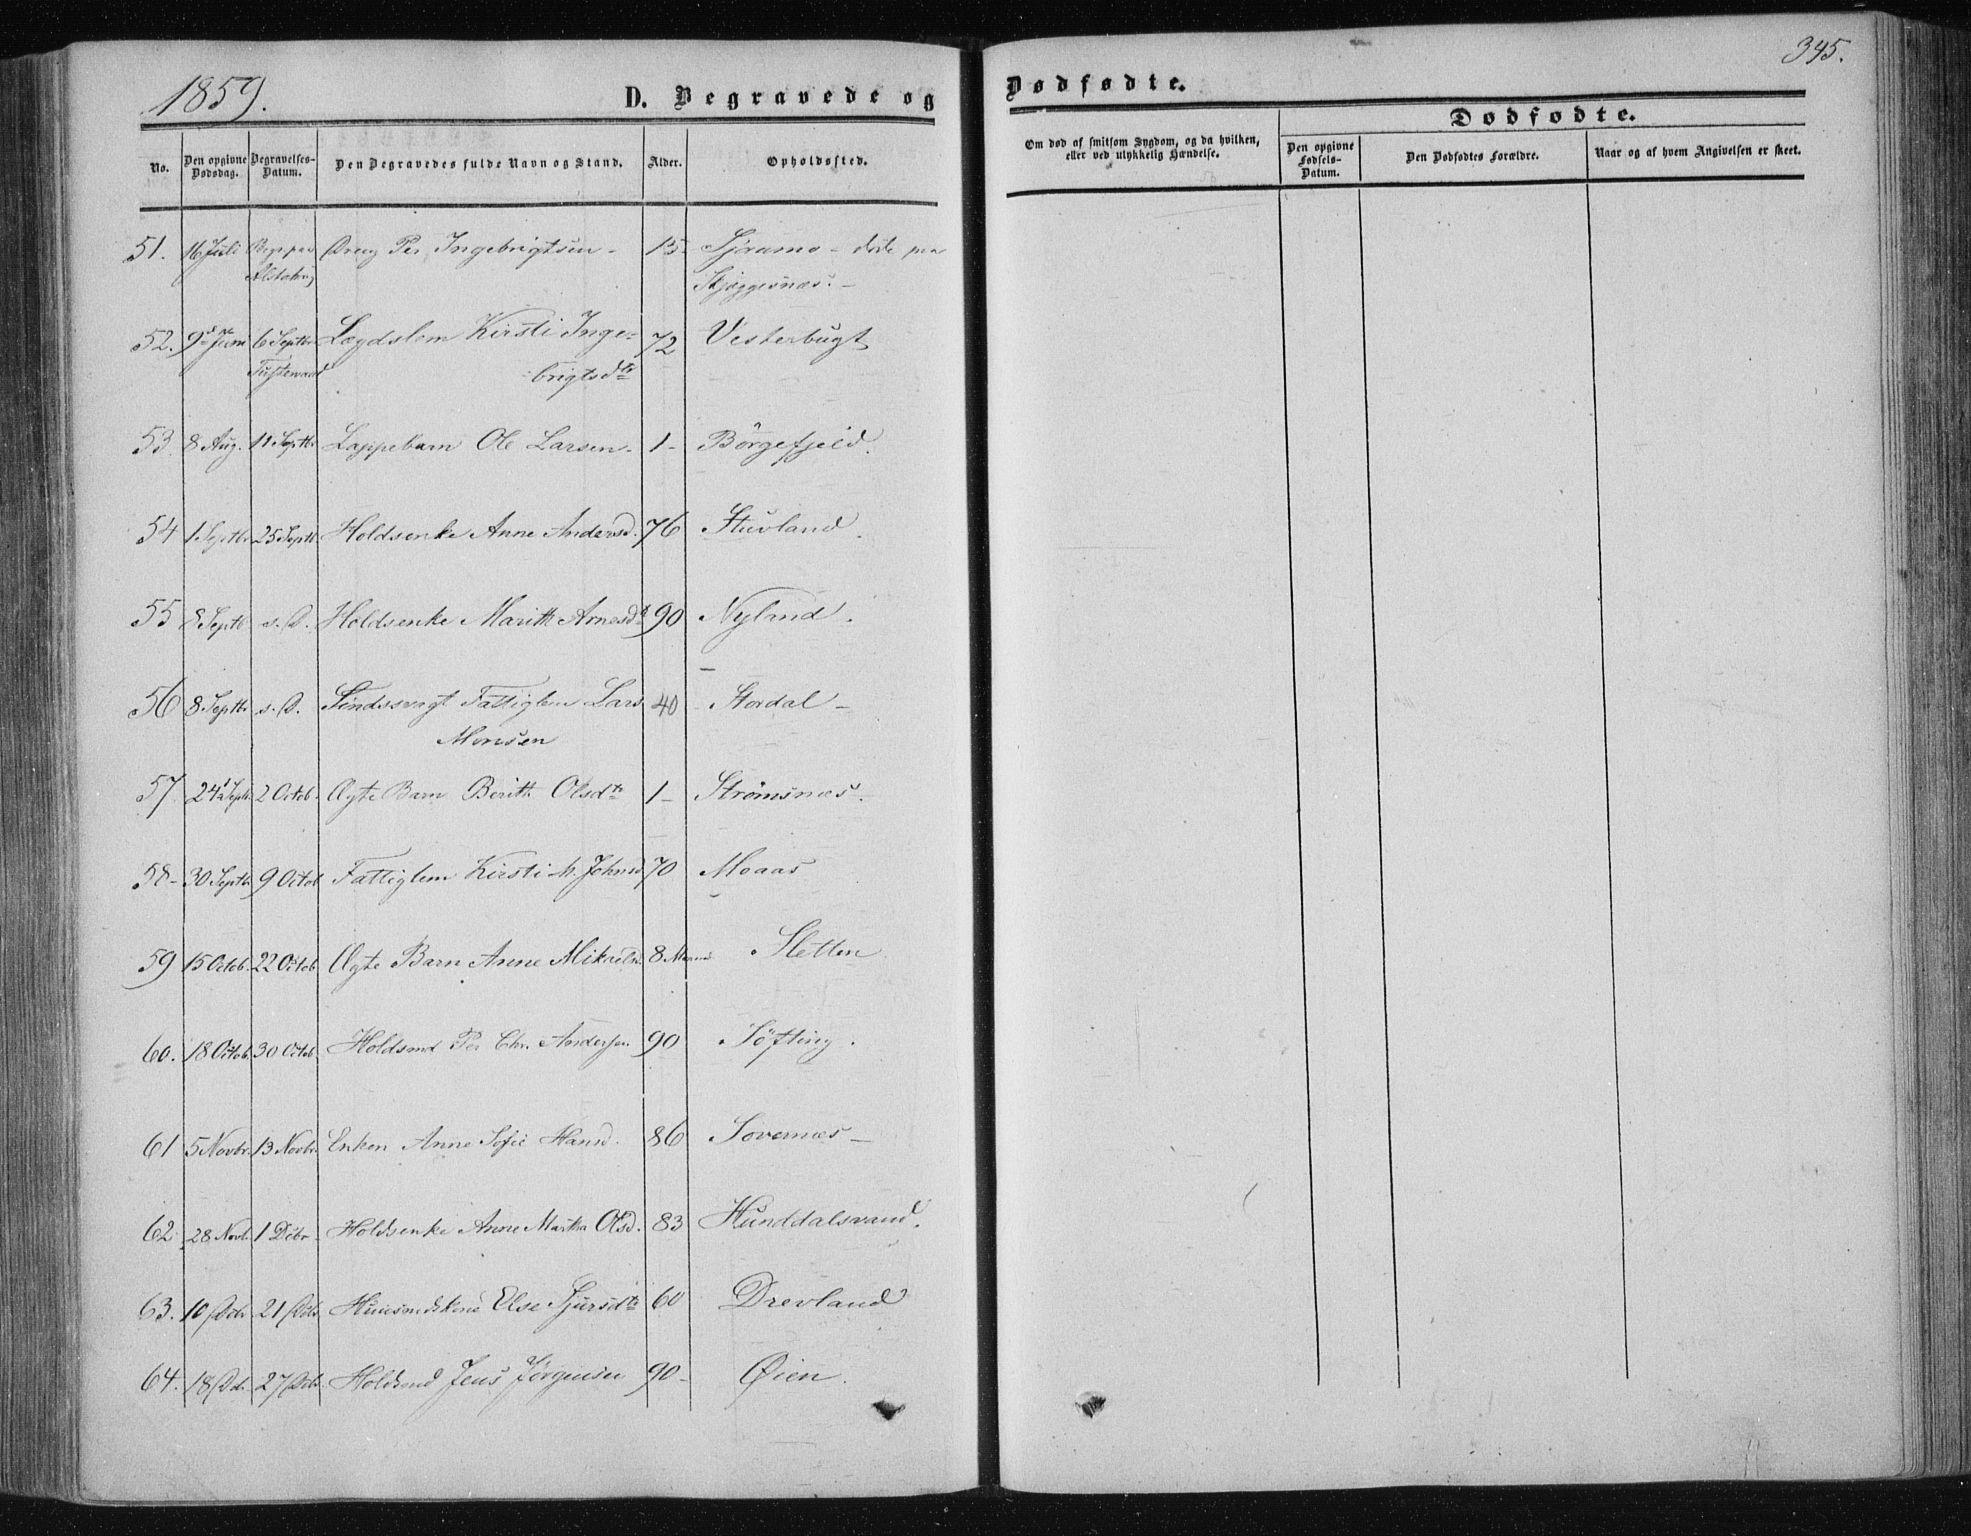 1859.
D. Begravede og
Dødfødte.
345.
No.
Den opgivne Dødsdag.
Begravelses-Datum.
Den Begravedes fulde Navn og Stand.
Alder.
Opholdssted.
Om død af smitsom Sygdom, og da hvilken, eller ved ulykkelig Hændelse.
Dødfødte.
Den opgivne Fødsels-Datum.
Den Dødfødtes Forældre.
Naar og af hvem Angivelsen er skeet.
51. 16 Juli Dreng Per Ingebrigtsen - 15 - døde paa
Alstahoug
52. 9de Juni 6 Septbr Lægdslem Kirsti Inge- 72 Vesterbugt
brigtsdtr
53. 8 Aug. 11 Septbr Lappebarn Ole Larsen. 1 - Børgefjeld.
54 1 Septbr 25 Septb. Holdsenke Anne Andersd. 76 Stuvland.
55 8 Septb s. D. Holdsenke Marith Arnesd. 90 Nyland.
56 8 Septbr s. D. Sindssvagt Fattiglem Lars 40 Stordal -
Monsen
57. 24 Septb. 2 Octob. Ægte Barn Berith Olsdtr 1 - Strømsnæs.
58 - 30 Septb. 9 Octob Fattiglem Kirsti M. Johnsd 70 Moaas
59 15 Octob. 22 Octob. Ægte Barn Anne Mikaelsd. 8 Sletten
60. 18 Octob. 30 Octob. Holdsmd Per Chr. Andersen 90 Søfting.
61 5 Novbr. 13 Novbr. Enken Anne Sofie Hansd. 86 Sovernæs -
62 28 Novb. 1 Debr Holdsenke Anne Martha Olsd. 83 Hunddalsvand.
63. 10 Dcb. 21 Dcb. Huusmdskone Else Sjursdtr 60 Drevland
64. 18 Dcb. 27 Dcb. Holdsmd Jens Jørgensen 90 - Øien.